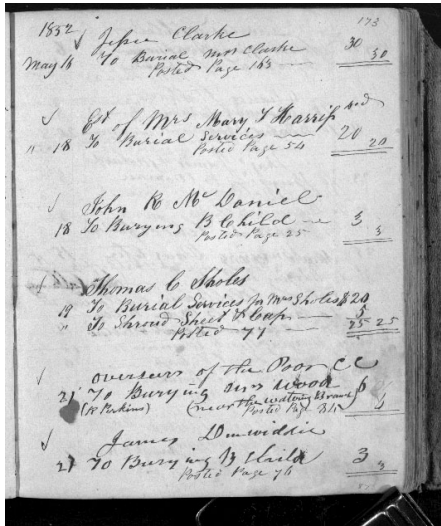 1852 173
Jesse Clarke
May 18 To Burial Mrs Clarke 30 30
Posted Page 163
Est of Mrs Mary T Harriss
" 18 To Burial Services 20 20
Posted Page 54
John R McDaniel
18 To Burying B Child 3 3
Posted Page 25
Thomas C Sholes
19 To Burial Services for Mrs Sholes $20
" To Shroud Sheet & Cap 5
Posted 77 25 25
Overseers of the Poor CC
21 To Burying Wood 6 6
(R Perkins) (near the
Posted Page
James Dinwiddie
27 To Burying B Child 3 3
Posted Page 76